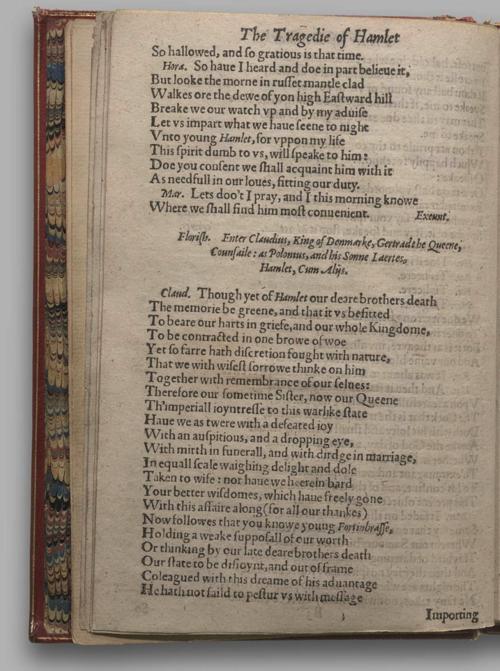 The Tragedie of Hamlet
So hallowed, and ſo gratious is that time.
Hora. So haue I heard and doe in part belieue it,
But looke the morne in ruſſet mantle clad
Walkes ore the dewe of yon high Eaſtward hill
Breake we our watch vp and by my aduiſe
Let vs impart what we haue ſeene to night
Vnto young Hamlet, for vppon my life
This ſpirit dumb to vs, will ſpeake to him:
Doe you conſent we ſhall acquaint him with it
As needfull in our loues, fitting our duty.
Mar. Lets doo't I pray, and I this morning knowe
Where we ſhall find him moſt conuenient. Exeunt.
Floriſh. Enter Claudius, King of Denmarke, Gertradt he Queene,
Counſaile: as Polonius, and his Sonne Laertes,
Hamlet, Cum Alijs.
Claud. Though yet of Hamlet our deare brothers death
The memorie be greene, and that it vs befitted
To beare our harts in griefe, and our whole Kingdome,
To be contracted in one browe of woe
Yet ſo farre hath diſcretion fought with nature,
That we with wiſeſt ſorrowe thinke on him
Together with remembrance of our ſelues:
Therefore our ſometime Siſter, now our Queene
Th'imperiall ioyntreſſe to this warlike ſtate
Haue we as twere with a defeated ioy
With an auſpitious, and a dropping eye,
With mirth in funerall, and with dirdge in marriage,
In equall ſcale waighing delight and dole
Taken to wife: nor haue we heerein bard
Your better wiſdomes, which haue freely gone
With this affaire along (for all our thankes)
Now followes that you knowe young Fortinbraſſe,
Holding a weake ſuppoſall of our worth
Or thinking by our late deare brothers death
Our ſtate to be diſioynt, and out of frame
Coleagued with this dreame of his aduantage
He hath not faild to peſtur vs with meſſage
Importing